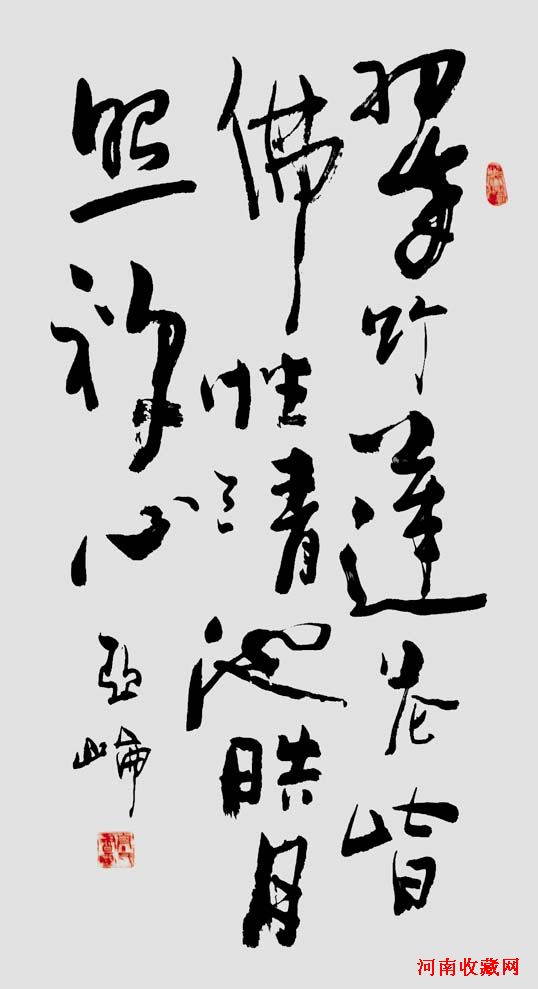 翠竹蓮花皆
佛性清池皓月
照禅心
亞
河南收藏网